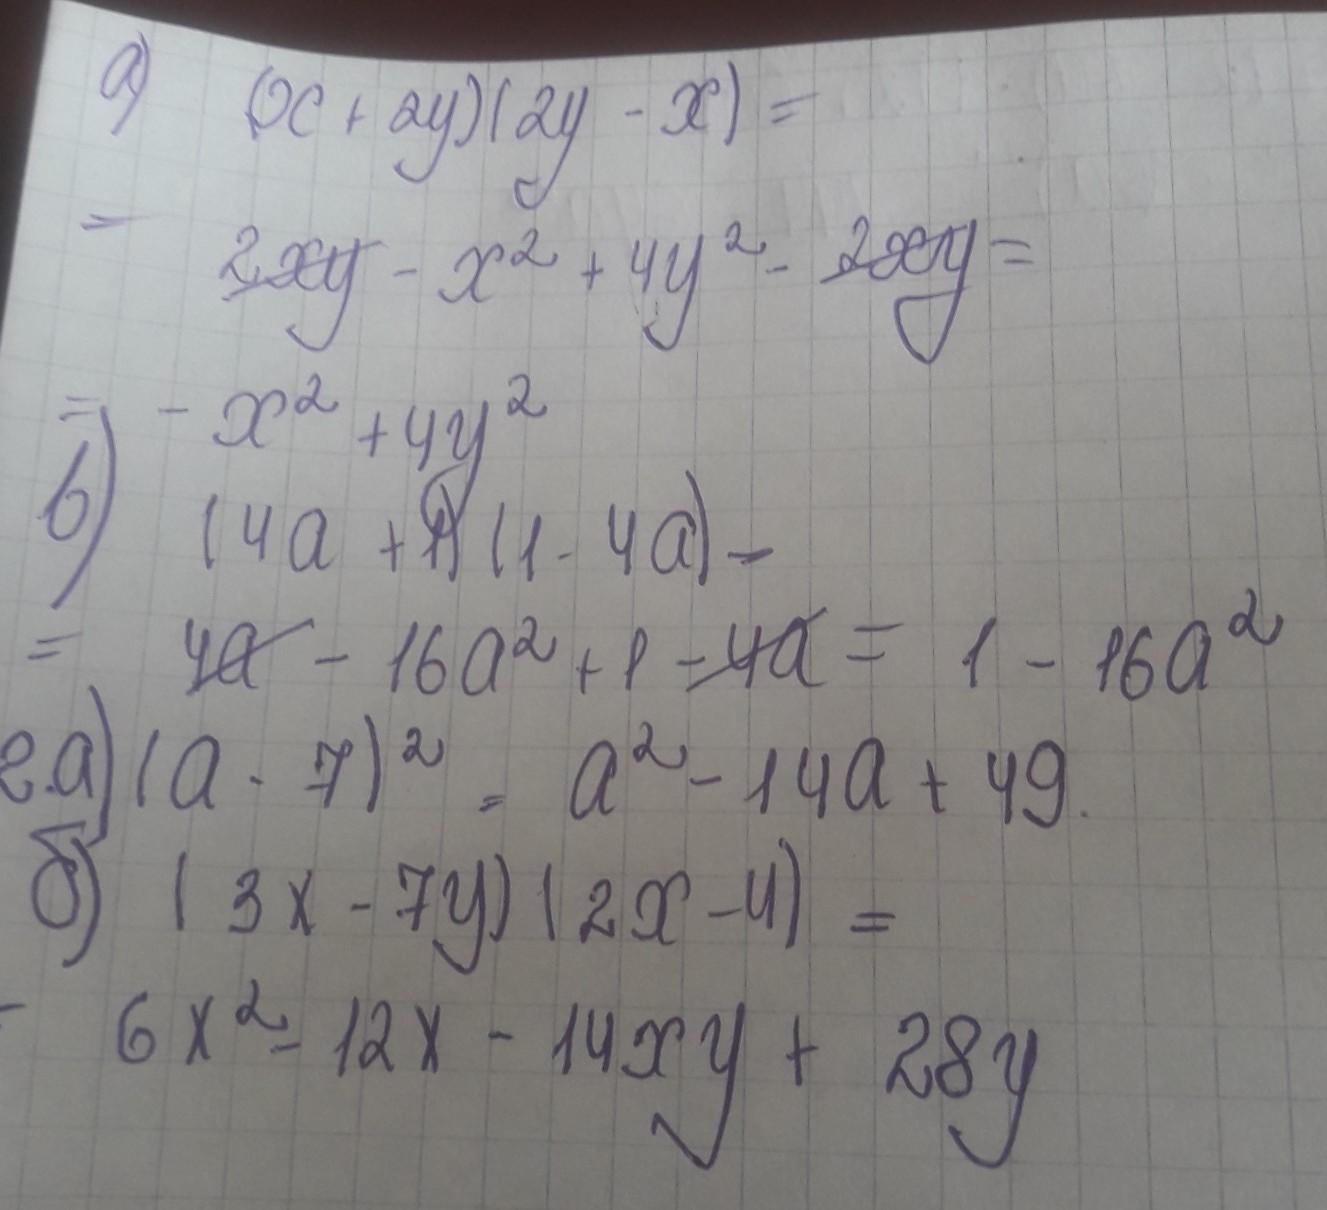 а) (x + 2y)(2y - x) =
= 2xy - x² + 4y² - 2xy =
= - x² + 4y²
в) (4a + 1)(1 - 4a) -
= 4a - 16a² + 1 - 4a = 1 - 16a²
2.а) (a - 7)² = a² - 14a + 49.
б) (3x - 7y)(2x - 4) =
- 6x² - 12x - 14xy + 28y